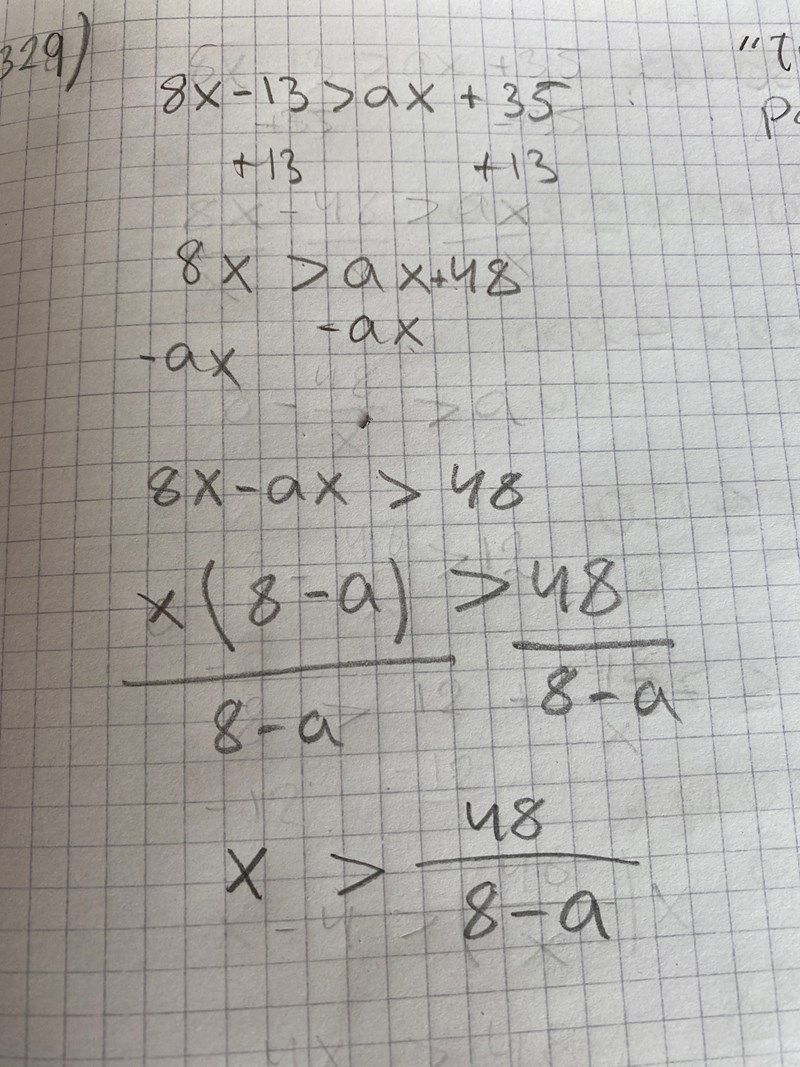 329)
8x-13>ax+35
+13 +13
8x >ax+48
-ax -ax
8x-ax > 48
x(8-a) > 48
8-a 8-a
x > 48
8-a